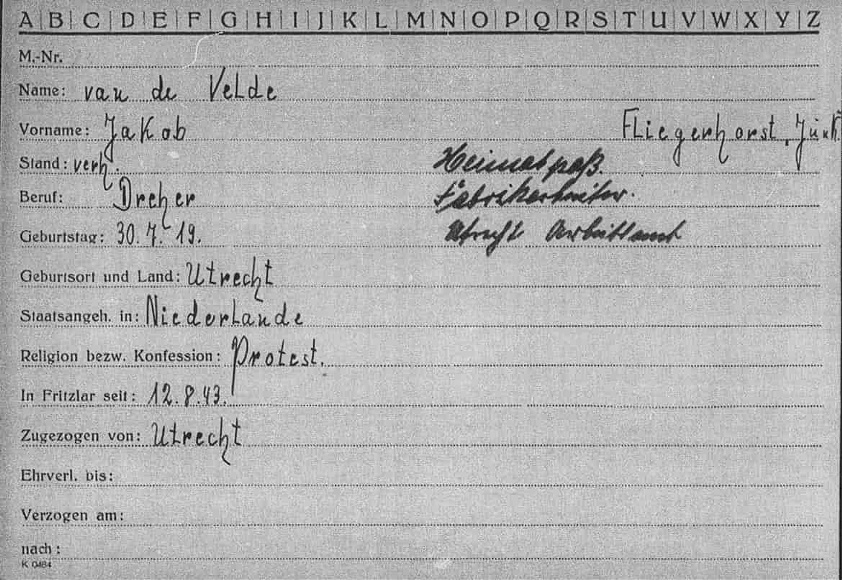 A|B|C|D|E|F|G|H|I|J|K|L|M|N|O|P|Q|R|S|T|U|V|W|X|Y|Z
M.-Nr.
Name: van de Velde
Vorname: Jakob Fliegerhorst, Junk
Stand: verh. Heimatpaß.
Beruf: Dreher Fabrikarbeiter.
Geburtstag: 30.7.19. Utrecht Arbeitsamt
Geburtsort und Land: Utrecht
Staatsangeh. in: Niederlande
Religion bezw. Konfession: Protest.
In Fritzlar seit: 12.8.43.
Zugezogen von: Utrecht
Ehrverl. bis:
Verzogen am:
nach:
K 0484